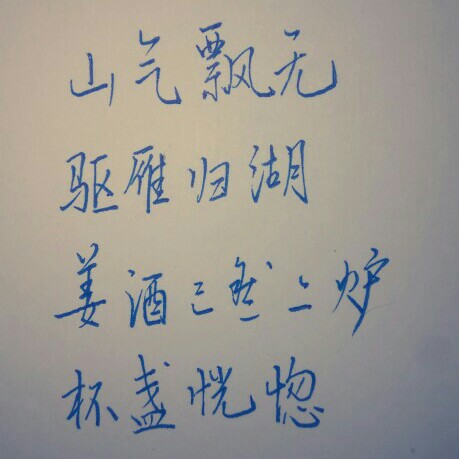 山气飘无
驱雁归湖
姜酒已然上炉
杯盏恍惚